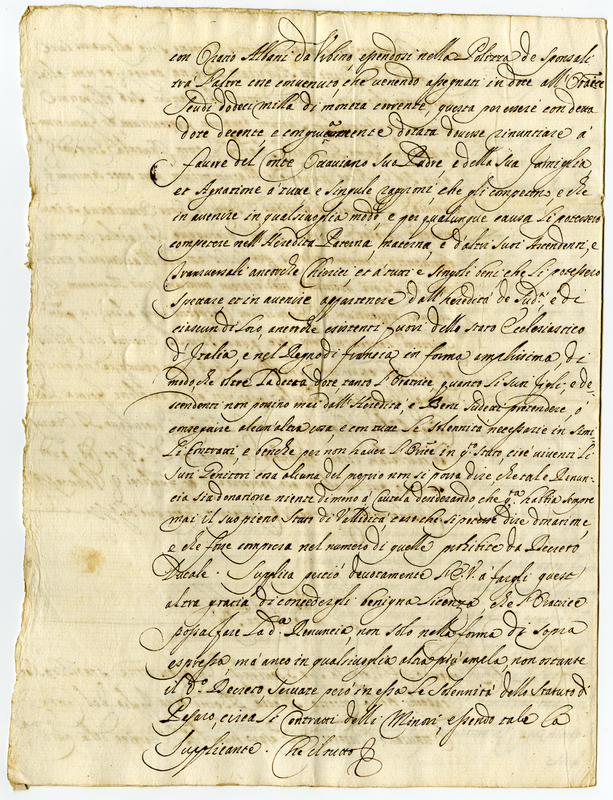 con Oratio Albani da Urbino essendosi nella Polizza de sponsali
trà l'altre cose convenuto che venendo assegnati in dote all'Oratrice
scudi dodeci milla di moneta corrente, questa per essere con detta
dote decente e congruamente dotata dovesse rinunciare à
favore del Conte Ottaviano suo Padre, e della sua famiglia
et Agnatione à tutte e singule raggioni che gli competono, e che
in avenire in qualsivoglia modo, e per qualunque causa li potessero
competere nell'Heredità Paterna, materna, e d'altri suoi Ascendenti, e
Transversali ancorche Chierici, et à tutti e singoli beni che li potessero
spettare et in avenire appartenere dall'heredità de Sud.i, e di
ciascun di loro, ancorche esistenti fuori dello stato Ecclesiastico
d'Italia, e nel Regno di francia in forma amplissima, di
modo, che oltre la detta dote tanto l'Oratrice, quanto li suoi figli, e de-
scendenti non possino mai dall'Heredità, e Beni sudetti pretendere, ò
conseguire alcun'altra cosa, e con tutte le solennità necessarie in simi
li Contratti, e benche per non haver l'Or.ce in q.o stato, cioè viventi li
suoi Genitori cosa alcuna del proprio non si possa dire che tale Renun-
cia sia donatione niente di meno à Cautela desiderando, che q.ta habbia sempre
mai il suo pieno stato di Validità caso che si potesse dire donatione,
e che fosse compresa nel numero di quelle proibite da Decreto
Ducale. Supplica perciò devotamente V.E. à fargli quest'
altra gratia di concedergli benigna licenza che l'Oratrice
possa fare la d.a Renuncia, non solo nella forma di sopra
espressa mà anco in qualsivoglia altra più ampla, non ostante
il d.o Decreto, servate però in essa le solennità dello Statuto di
Pesaro, circa li Contratti delli Minori, essendo tale la
Supplicante. Che il tutto